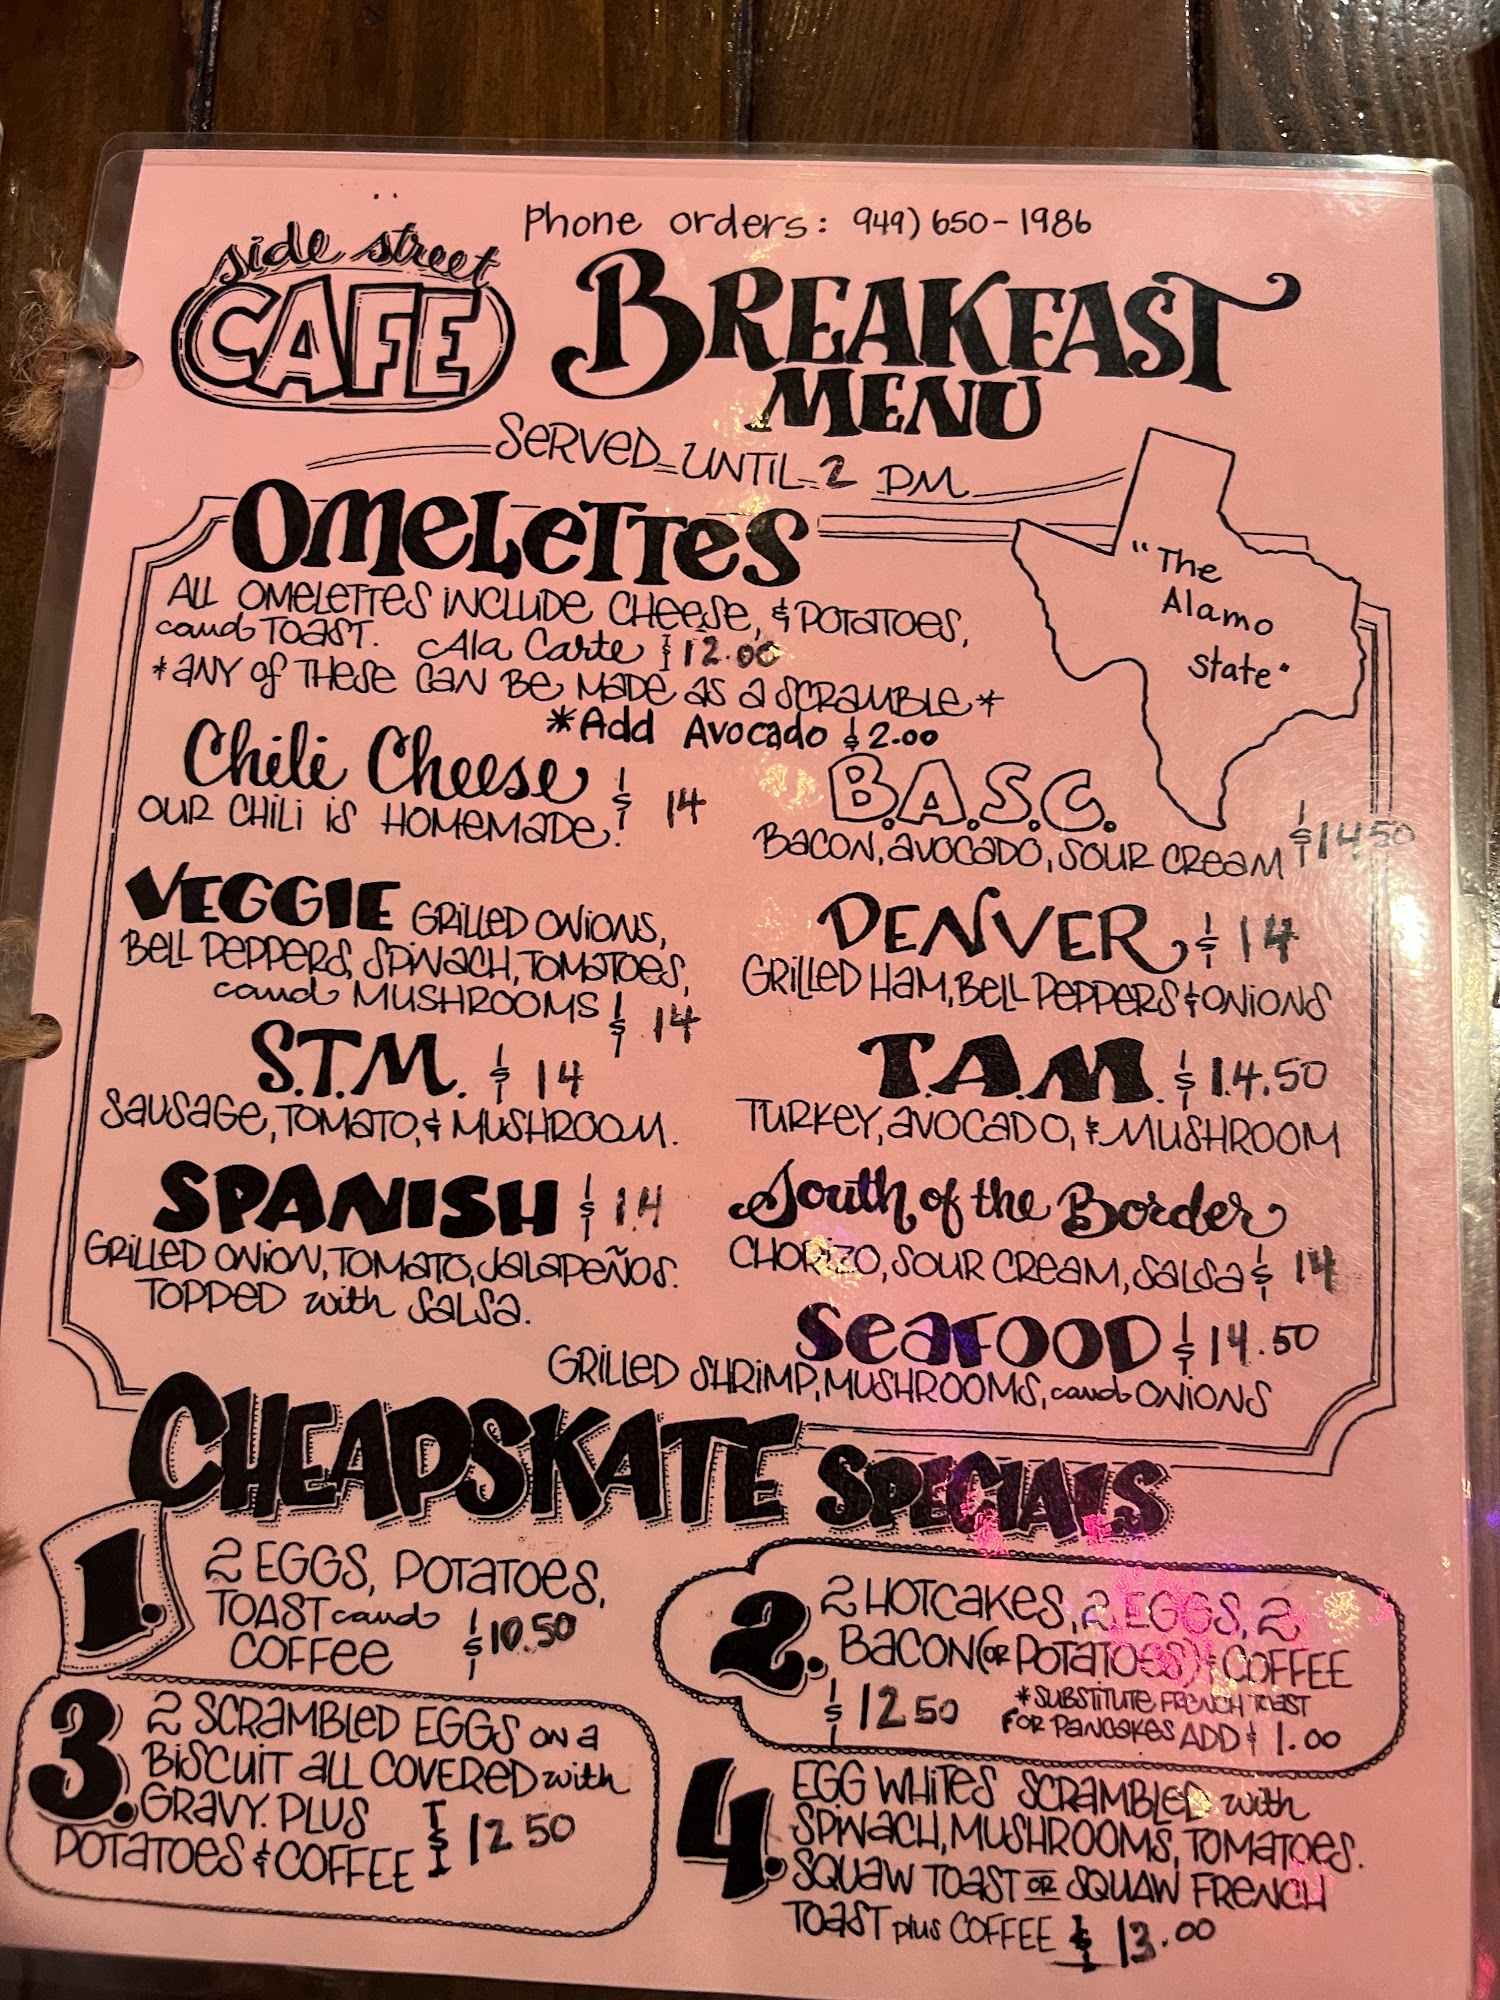 Phone orders: 949) 650-1986
side street
CAFE
BREAKFAST
MENU
SERVED UNTIL 2 PM
OMELETTES
"The
Alamo
State"
ALL OMELETTES INCLUDE CHEESE, & POTATOES,
and TOAST. Ala Carte $12.00
*ANY OF THESE CAN BE MADE AS A SCRAMBLE*
*Add Avocado $2.00
Chili Cheese $14
OUR CHILI IS HOMEMADE!
B.A.S.C.
BACON, AVOCADO, SOUR CREAM $14.50
VEGGIE GRILLED ONIONS,
BELL PEPPERS, SPINACH, TOMATOES,
and MUSHROOMS $14
DENVER $14
GRILLED HAM, BELL PEPPERS & ONIONS
S.T.M. $14
SAUSAGE, TOMATO, & MUSHROOM.
T.A.M. $14.50
TURKEY, AVOCADO, & MUSHROOM
SPANISH $14
GRILLED ONION, TOMATO, JALAPEÑOS.
TOPPED with SALSA.
South of the Border
CHORIZO, SOUR CREAM, SALSA $14
SEAFOOD $14.50
GRILLED SHRIMP, MUSHROOMS, and ONIONS
CHEAPSKATE SPECIALS
1. 2 EGGS, POTATOES,
TOAST and
COFFEE $10.50
2. 2 HOTCAKES, 2 EGGS, 2
BACON (OR POTATOES) & COFFEE
$12.50
*SUBSTITUTE FRENCH TOAST
FOR PANCAKES ADD $1.00
3. 2 SCRAMBLED EGGS ON A
BISCUIT ALL COVERED with
GRAVY. PLUS
POTATOES & COFFEE $12.50
4. EGG WHITES SCRAMBLED with
SPINACH, MUSHROOMS, TOMATOES.
SQUAW TOAST OR SQUAW FRENCH
TOAST plus COFFEE $13.00